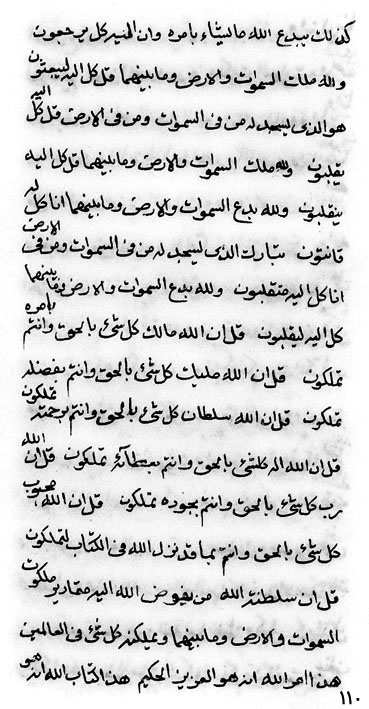 كذلك يبدع الله ما يشاء بامره وان اليه كل يرجعون
ولله ملك السموات والارض وما بينهما قل كل اليه ليبعثون
هو الذى يسجد له من فى السموات ومن فى الارض قل كل اليه
يقلبون ولله ملك السموات والارض وما بينهما قل كل اليه
ينقلبون ولله بدع السموات والارض وما بينهما انا كل له
قانتون تبارك الذى يسجد له من فى السموات ومن فى الارض
انا كل اليه منقلبون ولله بدع السموات والارض وما بينهما
كل اليه ليقلبون قل ان الله مالك كل شئ بالحق وانتم بامره
تملكون قل ان الله مليك كل شئ بالحق وانتم بفضله تملكون
تملكون قل ان الله سلطان كل شئ بالحق وانتم برحمته
قل ان الله اله كلشئ بالحق وانتم بعطآئه تملكون قل ان الله
رب كل شئ بالحق وانتم بجوده تملكون قل ان الله محبوب
كل شئ بالحق وانتم بما قد نزل الله فى الكتاب لتملكون
قل ان سلطنة الله من يفوض الله اليه مقادير ملكوت
السموات والارض وما بينهما ويملكنه كل شئ فى العالمين
هذا امر الله انه هو العزيز الحكيم هذا كتاب الله انه هو
١١٠